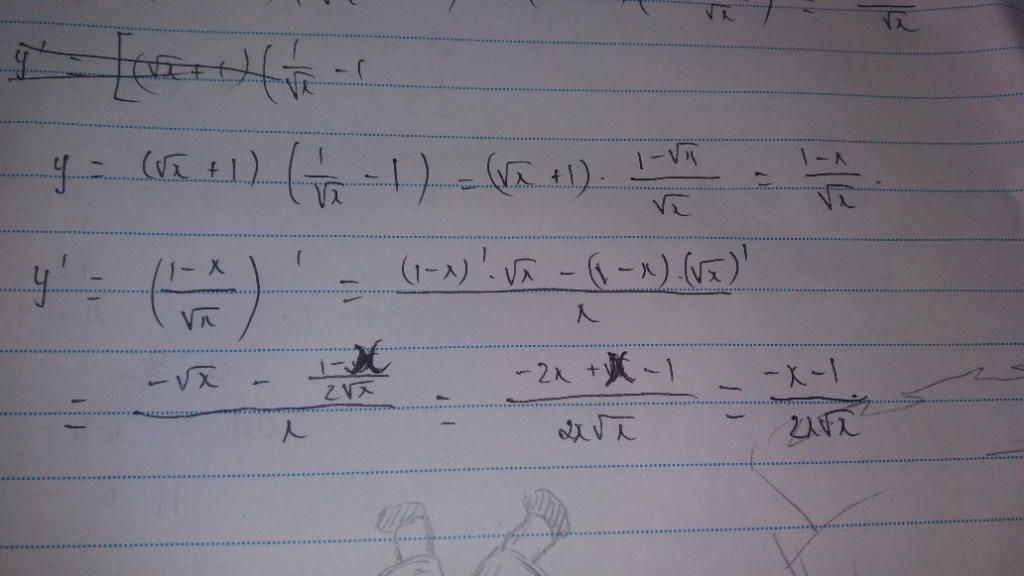 √x ) = √x
y' = [(√x + 1) (1/√x - 1
y = (√x + 1) (1/√x - 1) = (√x + 1) · (1-√x)/√x = (1-x)/√x .
y' = ((1-x)/√x)' = ((1-x)'·√x - (1-x)·(√x)')/x
= (-√x - (1-x)/(2√x))/x = (-2x + x - 1)/(2x√x) = (-x-1)/(2x√x)